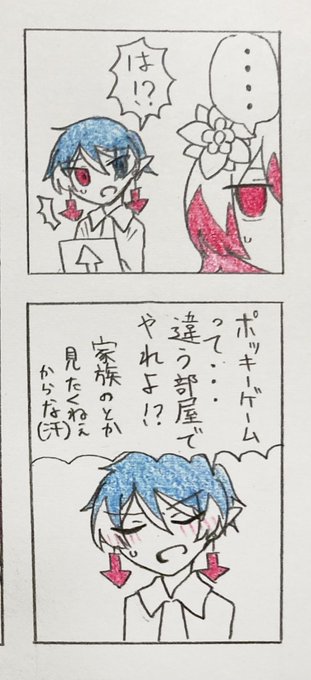 ・・・・
は!?
ポッキーゲーム
って・・・
違う部屋で
やれよ!?
家族のとか
見たくねぇ
からな(汗)